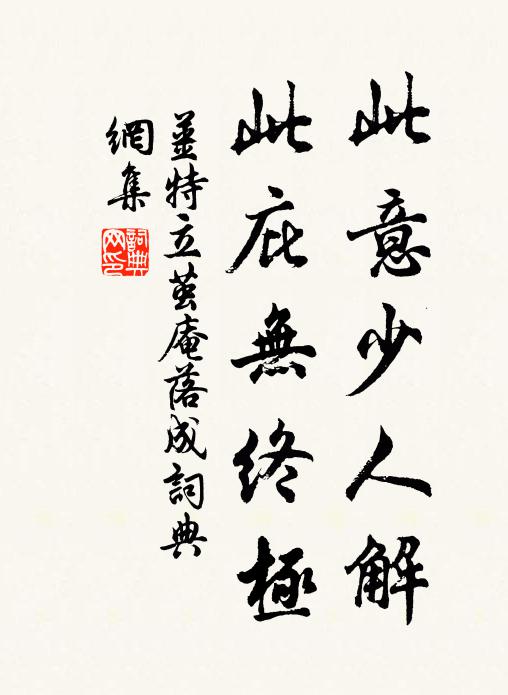 此意少人解
此庇無終極
姜特立茧庵落成詞典
網集
詞典
网印